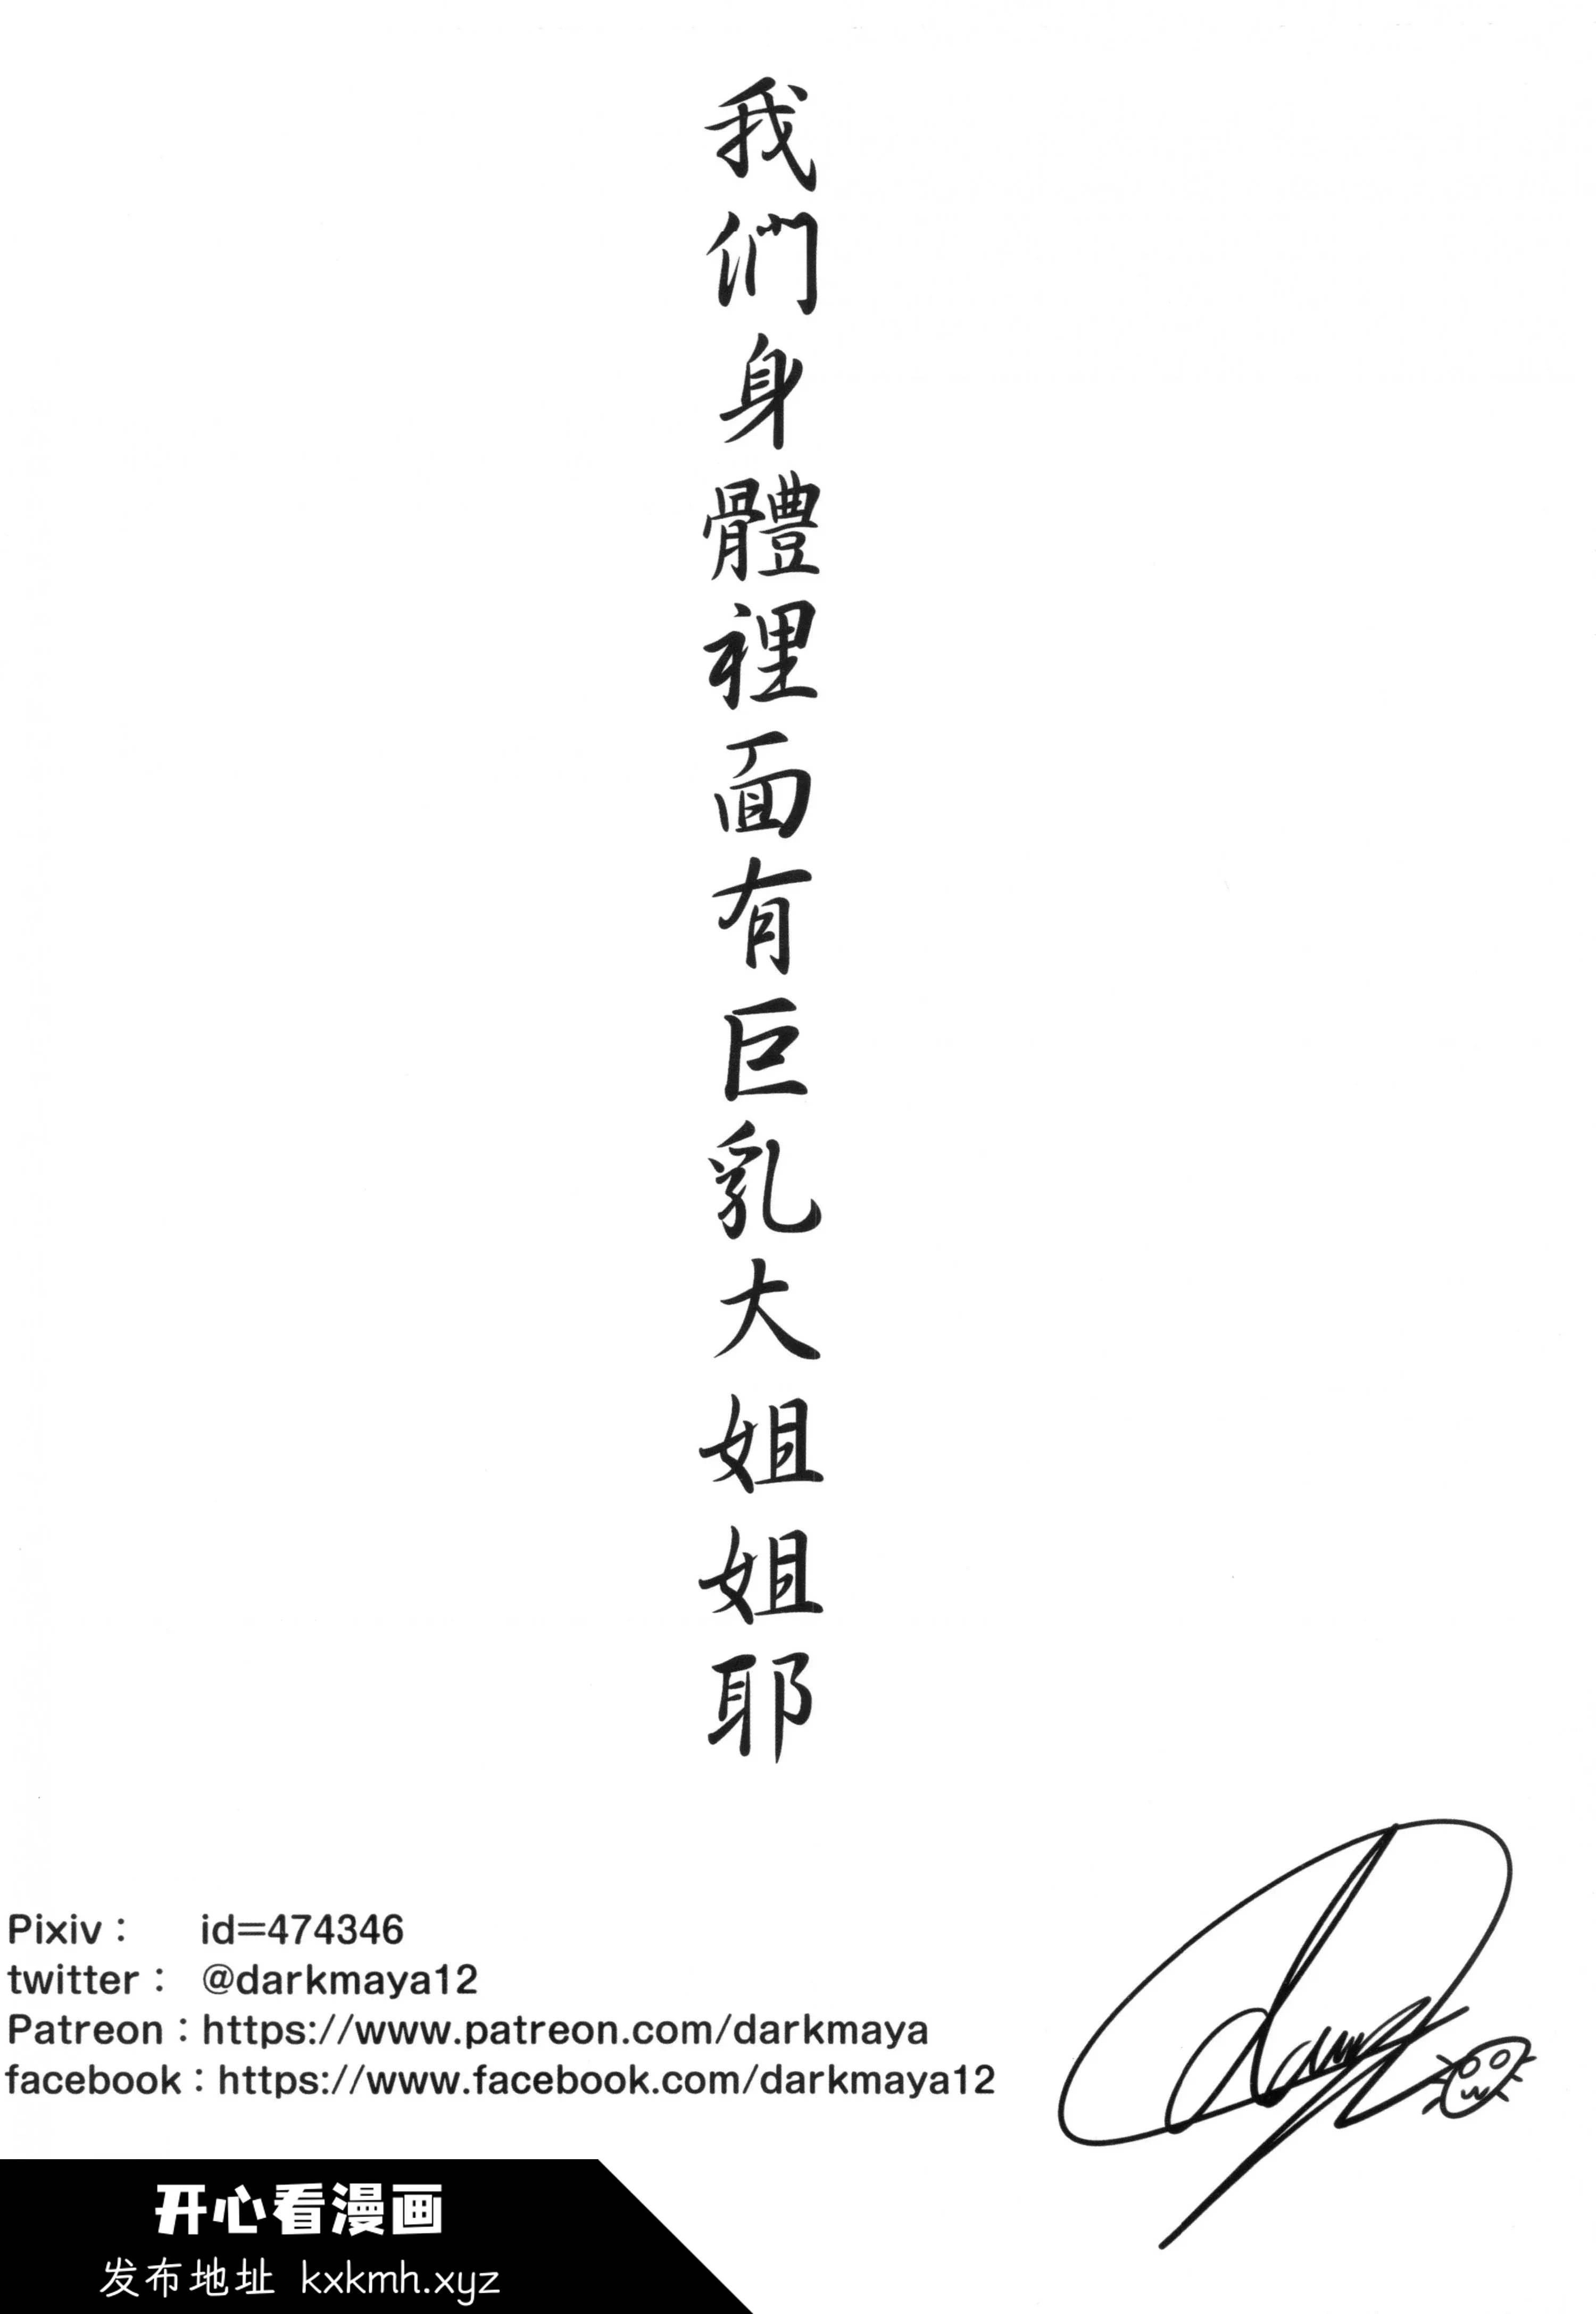 我們身體裡面有巨乳大姐姐耶
Pixiv： id=474346
twitter： @darkmaya12
Patreon：https://www.patreon.com/darkmaya
facebook：https://www.facebook.com/darkmaya12
开心看漫画
发布地址 kxkmh.xyz